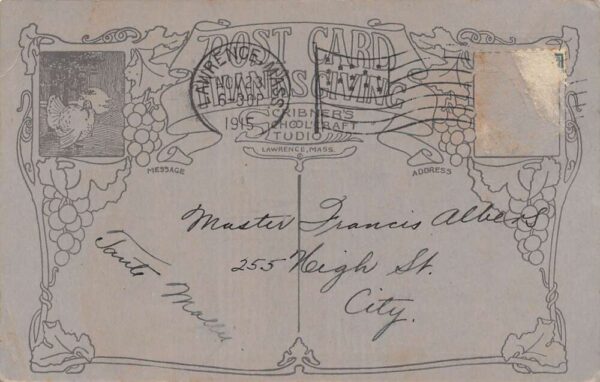 POST CARD
THANKSGIVING
SCRIBNER'S
SCHOOLCRAFT
STUDIO
LAWRENCE, MASS.
LAWRENCE, MASS.
NOV 23
1915
MESSAGE
ADDRESS
Master Francis Albers
255 High St.
City.
Tante
Mollie